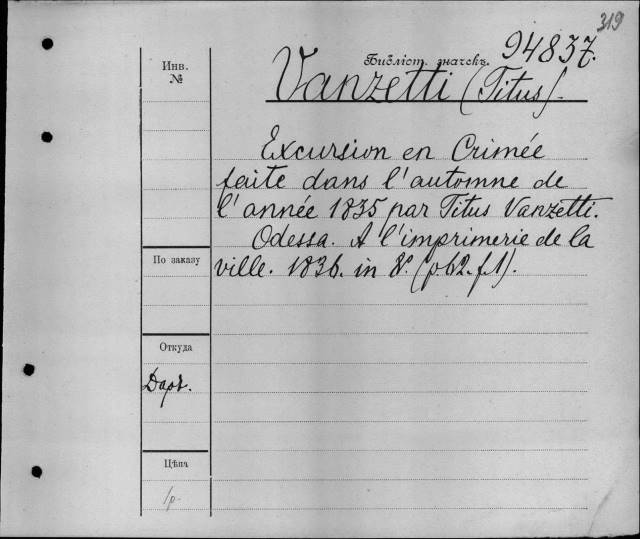 319
Библіот. значекъ 94837.
Инв.
№
Vanzetti (Titus).
Excursion en Crimée
faite dans l'automne de
l'année 1835 par Titus Vanzetti.
Odessa. A l'imprimerie de la
ville. 1836. in 8º. (p. 62. f. 1).
По заказу
Откуда
Дарв.
Цѣна
1р.